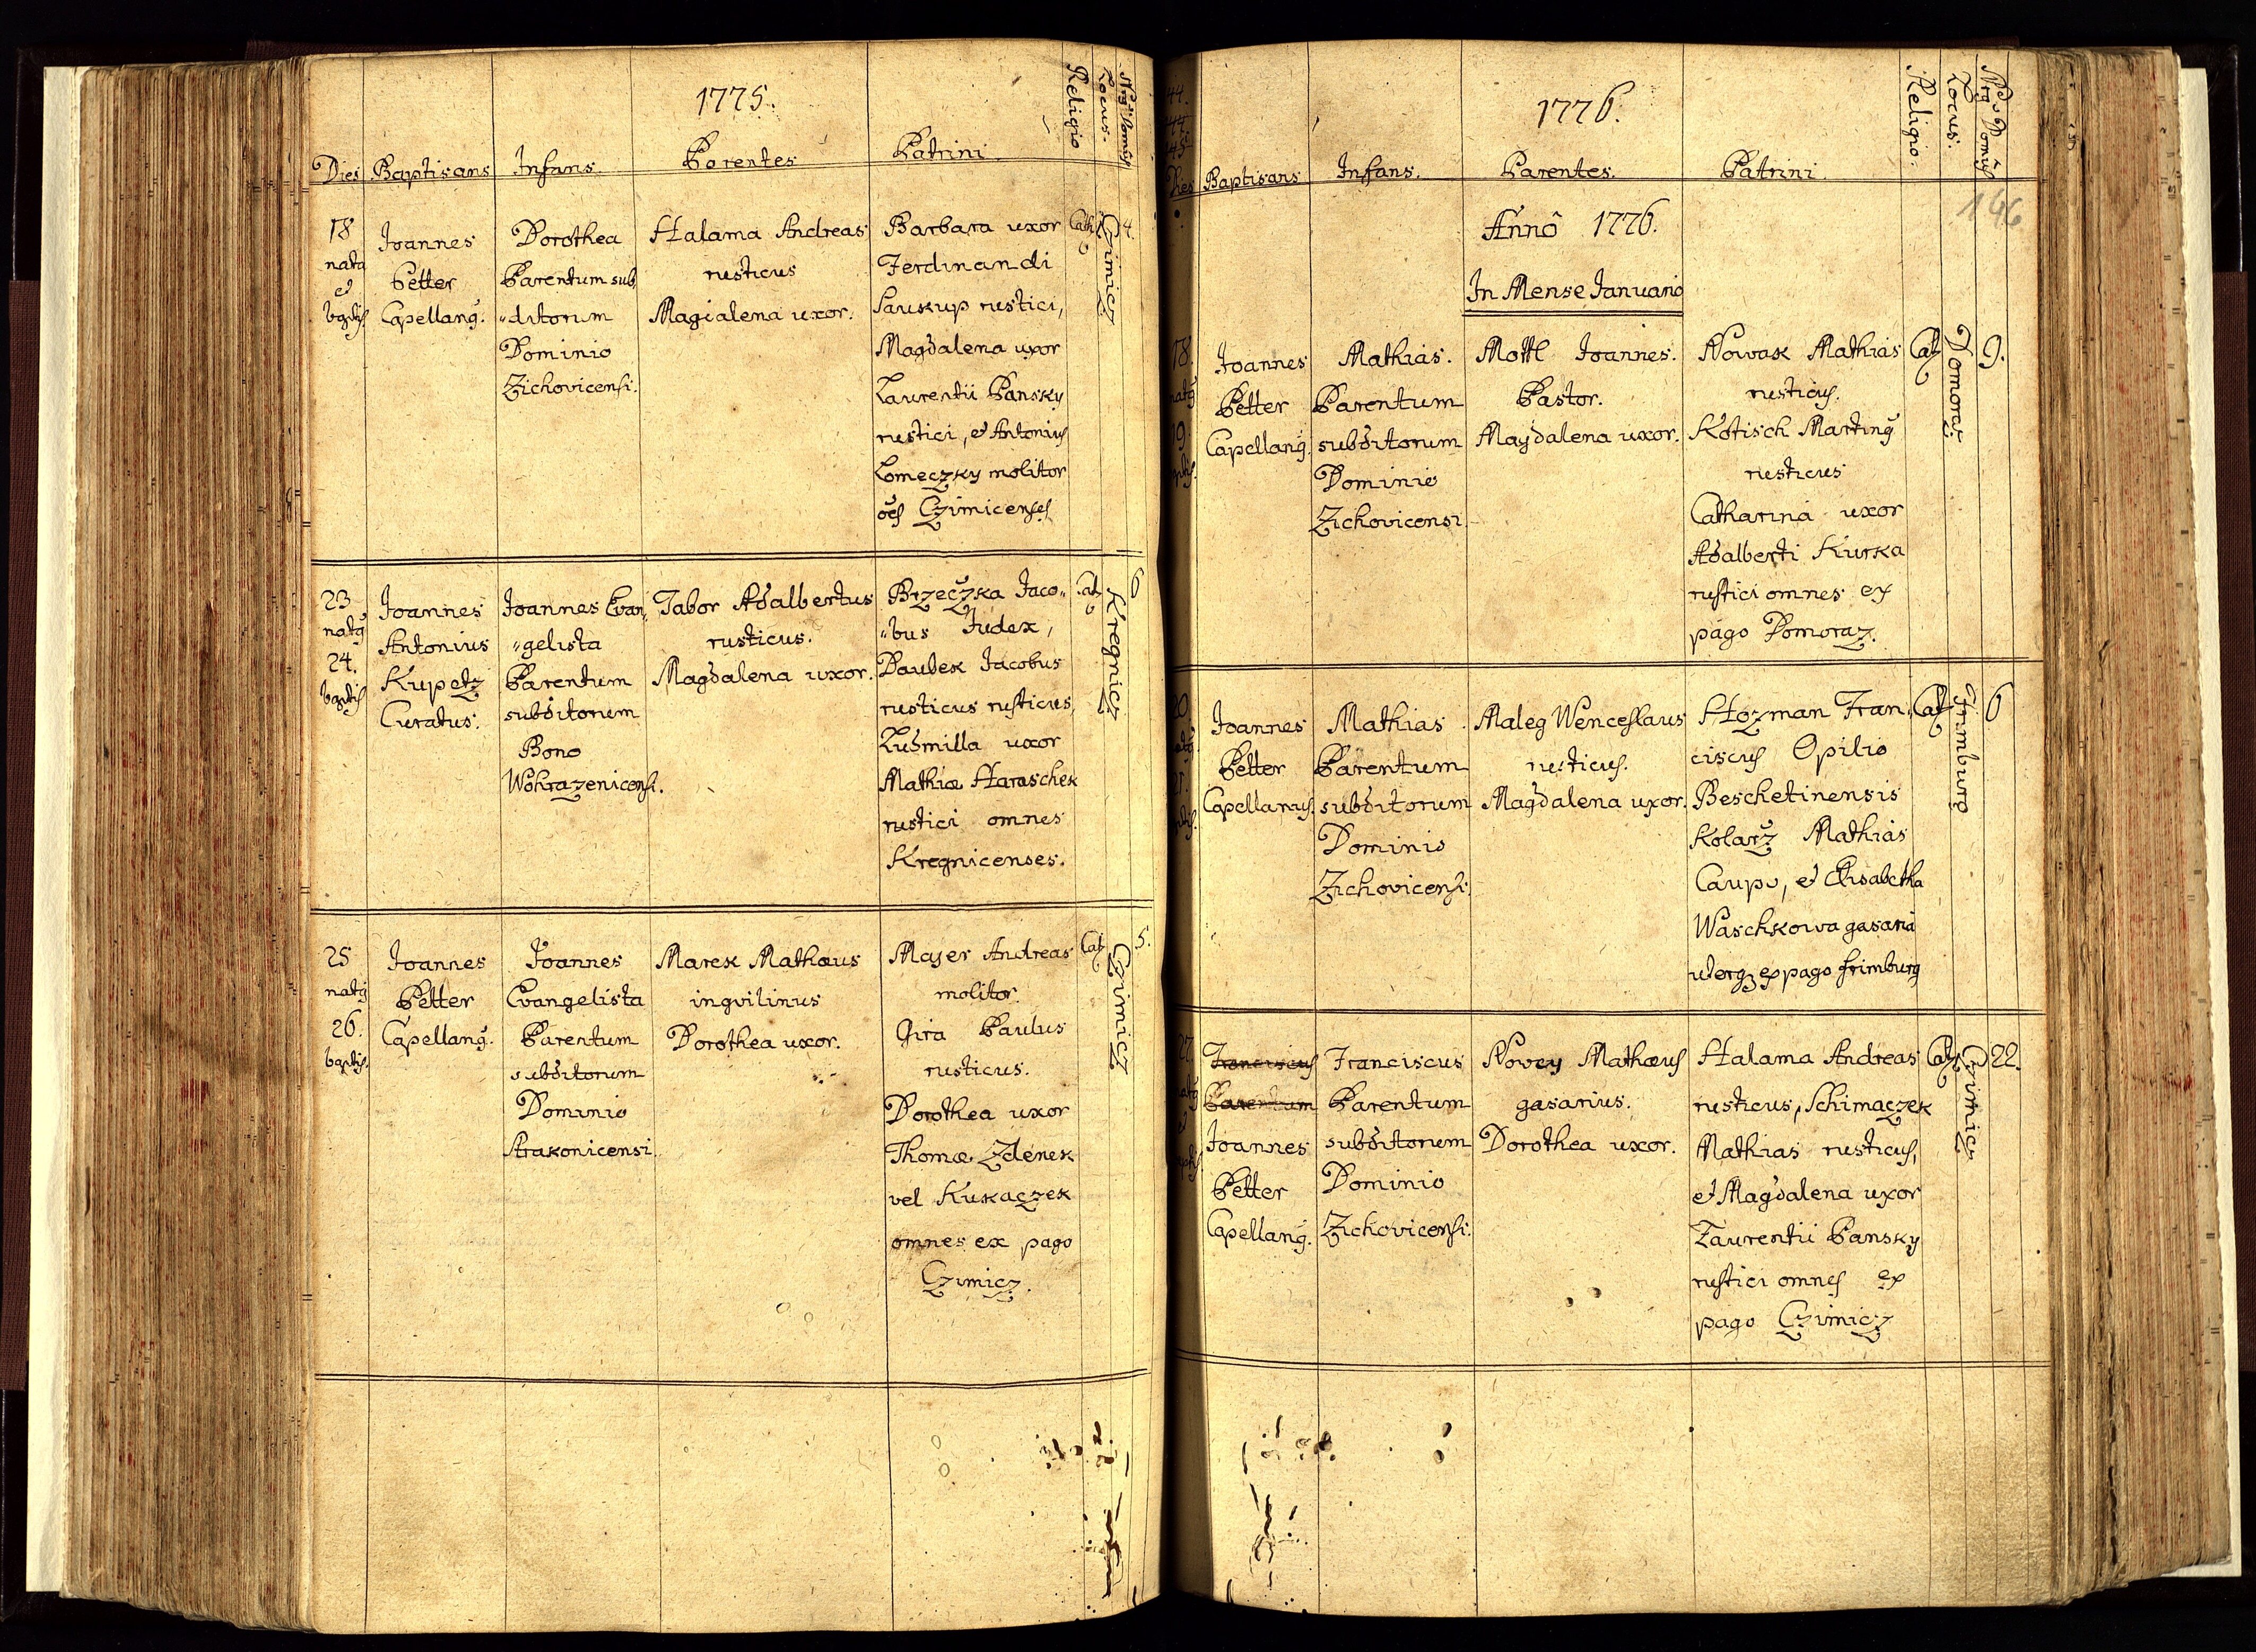 1775.
Dies Baptisans Infans. Parentes Patrini Religio Locus. Nrg Domus
18
nata
et
bapts
Joannes
Petter
Capellang.
Dorothea
Parentum sub,
"ditorum
Dominio
Zichovicensi.
Halama Andreas
rusticus
Magialena uxor.
Barbara uxor
Ferdinandi
Saukup rustici,
Magdalena uxor
Laurentii Pansky
rustici, et Antonius
Lomeczky molitor
oēs Czimicenses
Cath
Czimicz
4.
23
natg
24.
baptis
Joannes
Antonius
Kupetz
Curatus.
Joannes Evan,,
"gelista
Parentum
subditorum
Bono
Wohrazenicensi.
Tabor Adalbertus
rusticus.
Magdalena uxor.
Brzeczka Jaco,,
"bus Judex,
Daubek Jacobus
rusticus rusticus,
Ludmilla uxor
Mathiæ Haraschek
rustici omnes
Kregnicenses.
Cat
Kregnicz
6
25
natg
26.
baptis.
Joannes
Petter
Capellang.
Joannes
Evangelista
Parentum
subditorum
Dominio
Strakonicensi.
Marek Mathæus
ingvilinus
Dorothea uxor.
Majer Andreas
molitor.
Gira Paulus
rusticus.
Dorothea uxor
Thomæ Zdenek
vel Kukaczek
omnes ex pago
Czimicz.
Cat
Czimicz
5.
1776.
Dies Baptisans Infans. Parentes. Patrini. Religio. Locus. Nrg Domus
146
Annô 1776.
In Mense Januario
18.
natg
19.
Joannes
Petter
Capellang.
Mathias.
Parentum
subditorum
Dominio
Zichovicensi
Mottl Joannes.
Pastor.
Magdalena uxor.
Nowak Mathias
rusticus.
Kotisch Marting
rusticus
Catharina uxor
Adalberti Kurka
rustici omnes ex
pago Domoraz.
Cat
Domoraz
9.
20.
21.
Joannes
Petter
Capellanus.
Mathias.
Parentum
subditorum
Dominio
Zichovicensi.
Maleg Wenceslaus
rusticus.
Magdalena uxor.
Hozman Fran,,
ciscus Opilio
Beschetinensis
Kolarz Mathias
Caupo, et Elisabetha
Waschkowa gasaria
uterq ex pago frimburg
Cat
Frimburg
6
27.
Franciscus
Parentum
Joannes
Petter
Capellang.
Franciscus
Parentum
subditorum
Dominio
Zichovicensi.
Novey Mathæus
gasarius.
Dorothea uxor.
Halama Andreas
rusticus, Schimaczek
Mathias rusticus,
et Magdalena uxor
Laurentii Pansky
rustici omnes ex
pago Czimicz
Cat
Czimicz
22.